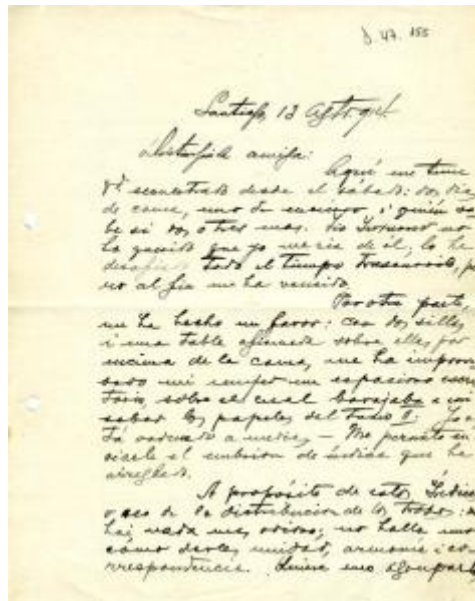 D 47. 155
Santiago, 13 Agto. 914.
Distinguida amiga:
Aquí me tiene
Vd. secuestrado desde el sábado: dos días
de cama, uno de encierro, i quién sa
be si dos otros mas. Don Invierno no
ha querido que yo me ria de él, lo he
todo el tiempo trascurrido, pe
ro al fin me ha vencido.
Por otra parte,
me ha hecho un favor: con dos sillas
i una tabla afirmada sobre ellas por
encima de la cama, me ha improvi
sado mi mujer un espacioso escri
torio, sobre el cual barajaba a mi
sabor los papeles del Tomo II.
a medias, — Me permito en
viarle el embrion de índice que he
arreglado.
A propósito de estos Índices
o sea de la distribucion de los trozos: no
hai nada mas odioso; no halla uno
cómo darles unidad, armonía i co-
rrespondencia. Quiere uno agruparlos